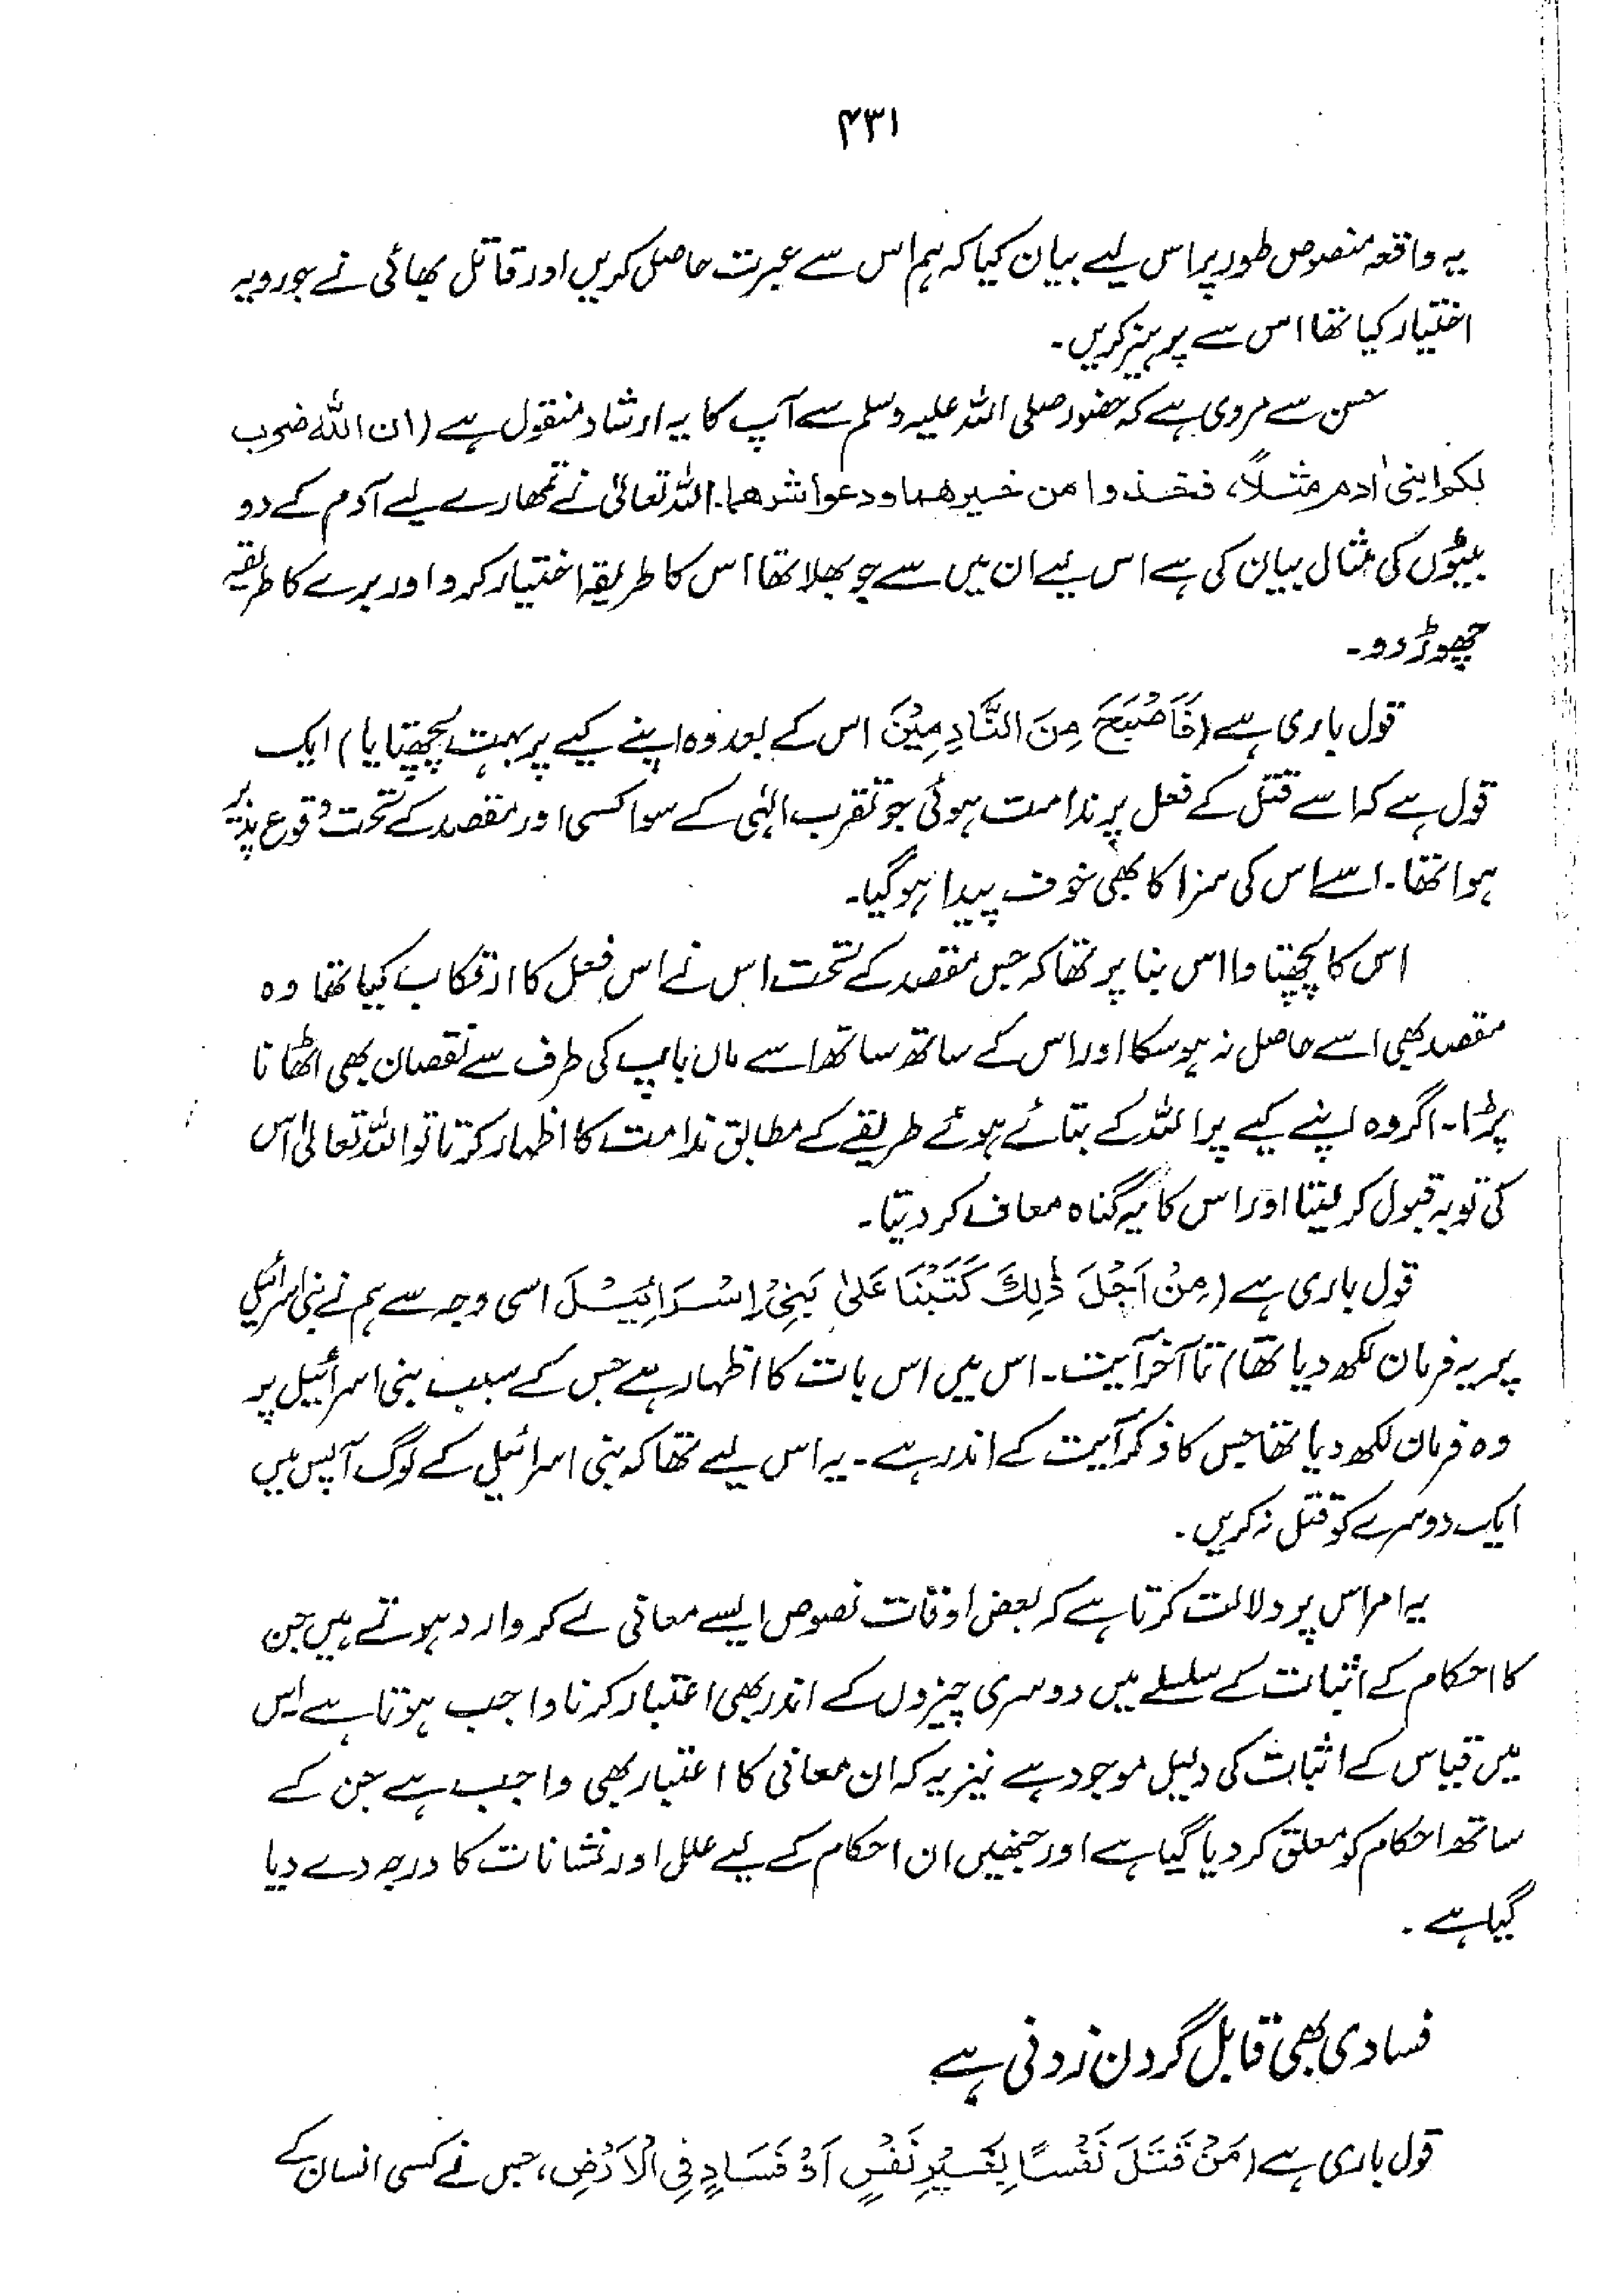 ۴۳۱
یہ واقعہ منصوص طور پر اس لیے بیان کیا کہ ہم اس سے عبرت حاصل کریں اور قاتل بھائی نے جو رویہ
اختیار کیا تھا اس سے پرہیز کریں۔
حسن سے مروی ہے کہ حضور صلی اللہ علیہ وسلم سے آپ کا یہ ارشاد منقول ہے (ان اللہ ضرب
لکم ابنی اٰدم مثلاً، فخذوا من خیرھما ودعوا شرھما۔ اللہ تعالیٰ نے تمھارے لیے آدم کے دو
بیٹوں کی مثال بیان کی ہے اس لیے ان میں سے جو بھلا تھا اس کا طریقہ اختیار کرو اور برے کا طریقہ
چھوڑ دو۔
قول باری ہے (فَاَصْبَحَ مِنَ النَّادِمِیْنَ اس کے بعد وہ اپنے کیے پر بہت پچھتایا) ایک
قول ہے کہ اسے قتل کے فعل پر ندامت ہوئی جو تقرب الہٰی کے سوا کسی اور مقصد کے تحت وقوع پذیر
ہوا تھا۔ اسے اس کی سزا کا بھی خوف پیدا ہو گیا۔
اس کا پچھتاوا اس بنا پر تھا کہ جس مقصد کے تحت اس نے اس فعل کا ارتکاب کیا تھا وہ
مقصد بھی اسے حاصل نہ ہو سکا اور اس کے ساتھ ساتھ اسے ماں باپ کی طرف سے نقصان بھی اٹھانا
پڑا۔ اگر وہ اپنے کیے پر اللہ کے بتائے ہوئے طریقے کے مطابق ندامت کا اظہار کرتا تو اللہ تعالیٰ اس
کی توبہ قبول کر لیتا اور اس کا یہ گناہ معاف کر دیتا۔
قول باری ہے (مِنْ اَجْلِ ذٰلِكَ كَتَبْنَا عَلٰی بَنِیْ اِسْرَائِیْلَ اسی وجہ سے ہم نے بنی اسرائیل
پر یہ فرمان لکھ دیا تھا) تا آخر آیت۔ اس میں اس بات کا اظہار ہے جس کے سبب بنی اسرائیل پر
وہ فرمان لکھ دیا تھا جس کا ذکر آیت کے اندر ہے۔ یہ اس لیے تھا کہ بنی اسرائیل کے لوگ آپس میں
ایک دوسرے کو قتل نہ کریں۔
یہ امر اس پر دلالت کرتا ہے کہ بعض اوقات نصوص ایسے معانی لے کر وارد ہوتے ہیں جن
کا احکام کے اثبات کے سلسلے میں دوسری چیزوں کے اندر بھی اعتبار کرنا واجب ہوتا ہے اس
میں قیاس کے اثبات کی دلیل موجود ہے نیز یہ کہ ان معانی کا اعتبار بھی واجب ہے جن کے
ساتھ احکام کو معلق کر دیا گیا ہے اور جنھیں ان احکام کے لیے علل اور نشانات کا درجہ دے دیا
گیا ہے۔
فسادی بھی قابل گردن زدنی ہے
قول باری ہے (مَنْ قَتَلَ نَفْسًا بِغَیْرِ نَفْسٍ اَوْ فَسَادٍ فِی الْاَرْضِ، جس نے کسی انسان کے